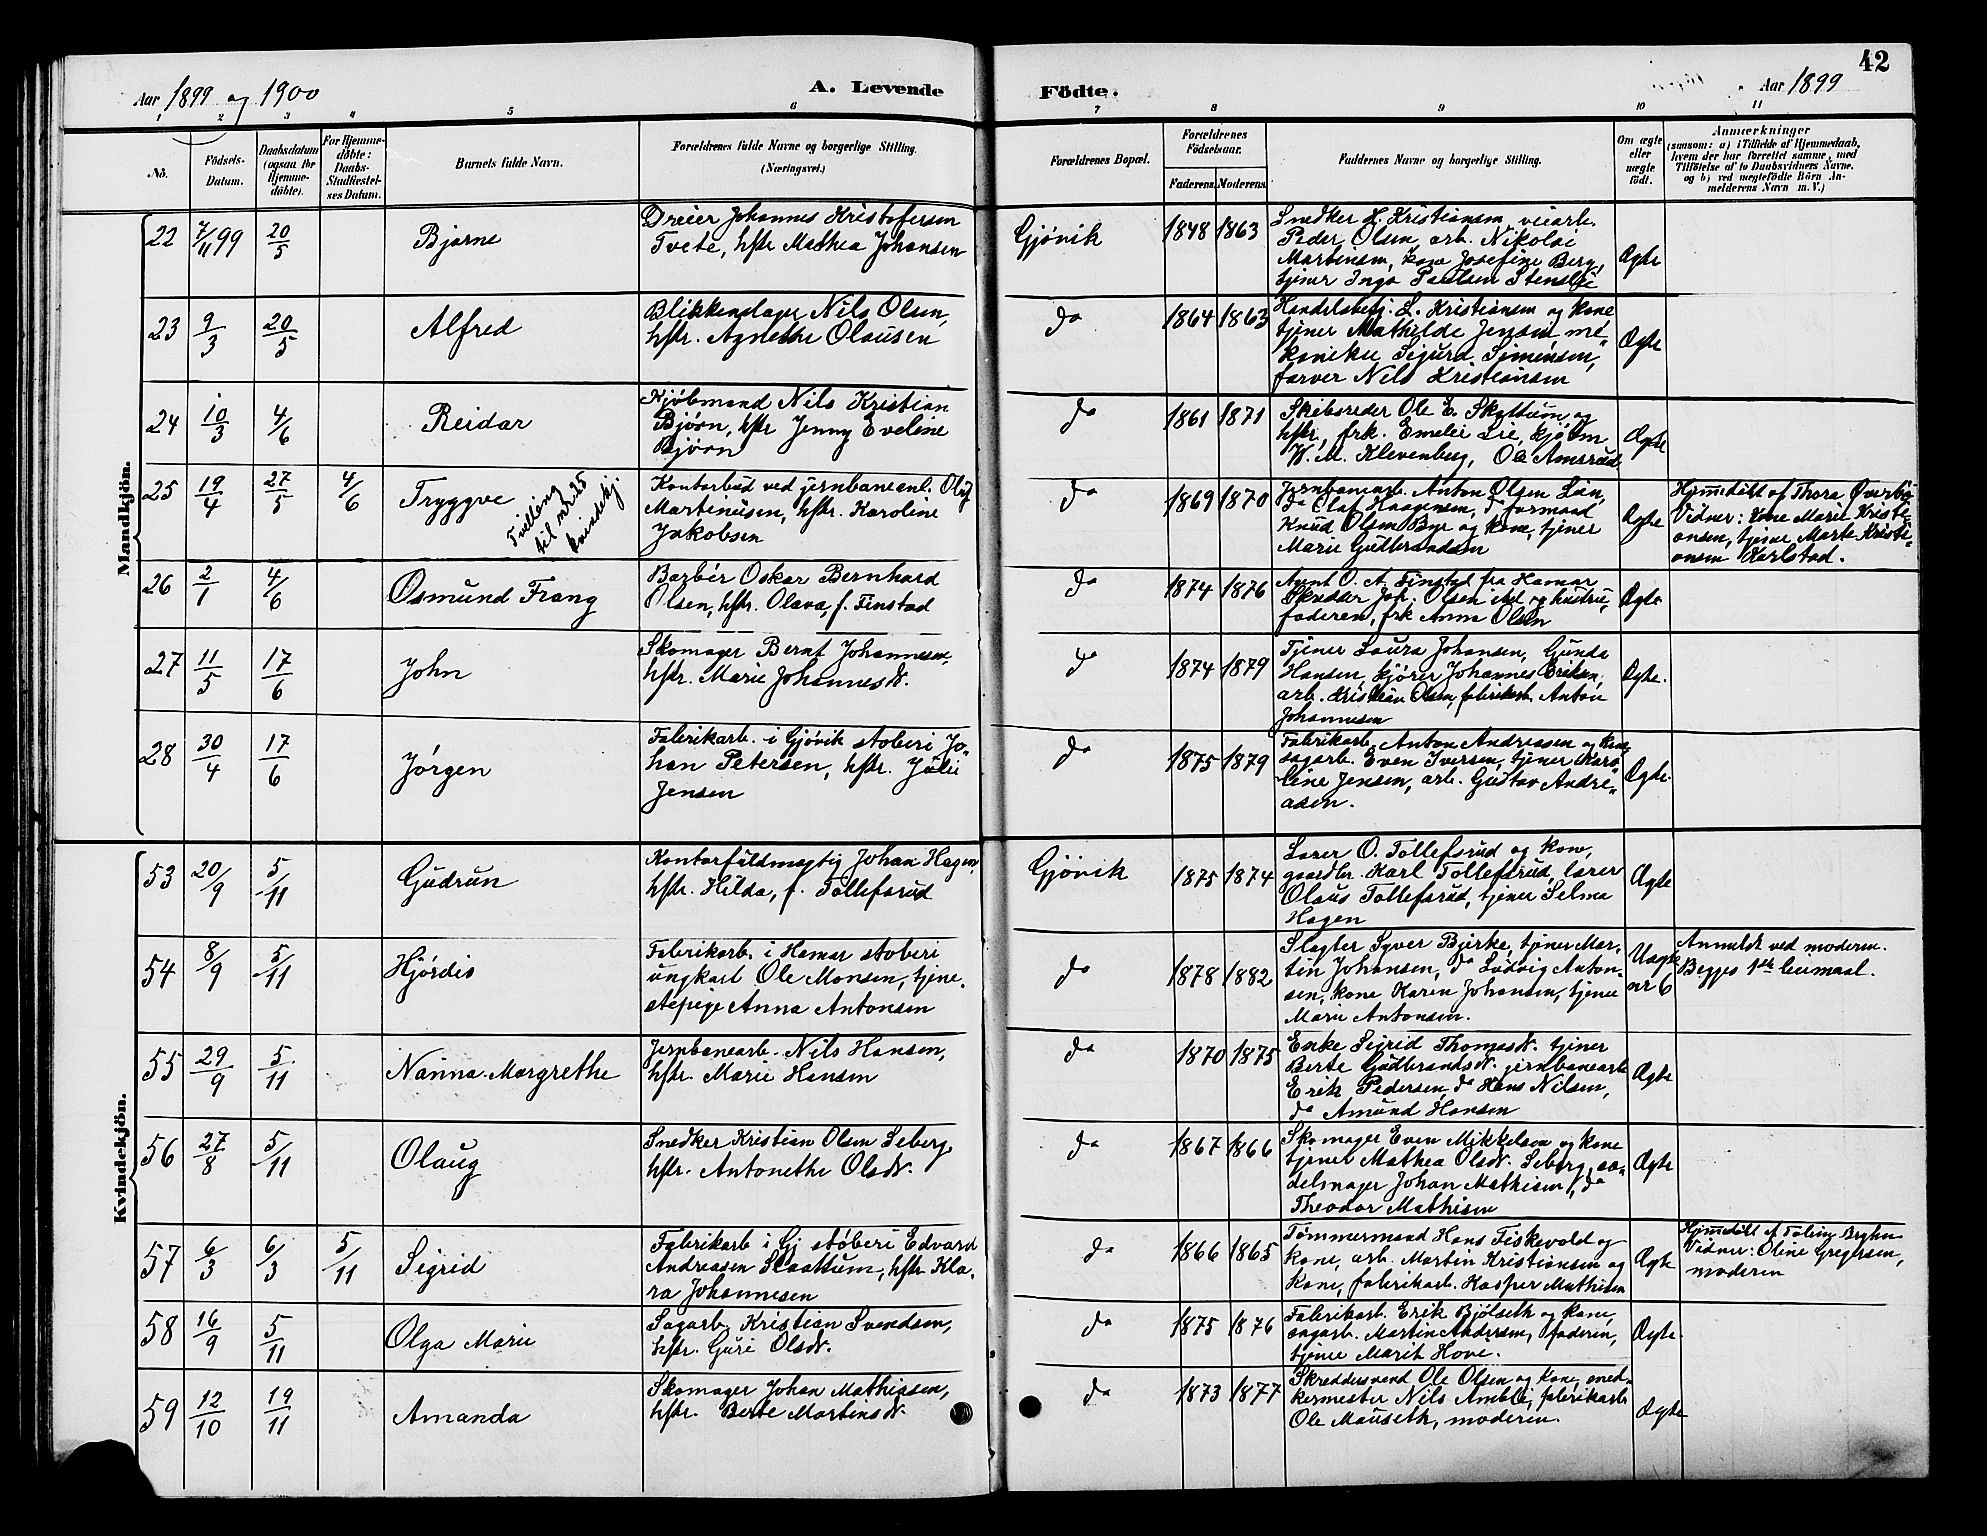 42
Aar 1899 og 1900
A. Levende
Födte.
Aar 1899
1 2 3 4 5 6 7 8 9 10 11
No.
Födsels-
Datum.
Daabsdatum
(ogsaa for
Hjemme-
döbte).
For Hjemme-
döbte:
Daabs-
Stadfæstel-
ses Datum.
Barnets fulde Navn.
Forældrenes fulde Navne og borgerlige Stilling.
(Næringsvei.)
Forældrenes Bopæl.
Forældrenes
Födselsaar.
Faderens. Moderens.
Faddernes Navne og borgerlige Stilling.
Om ægte
eller
uægte
født.
Anmærkninger
(saasom: a) i Tilfælde af Hjemmedaab,
hvem der har forrettet samme, med
Tilföielse af to Daabsvidners Navne,
og b) ved uægtefödte Börn An-
melderens Navn m. V.)
Mandkjön.
22 7/11 99 20/5 Bjarne
Dreier Johannes Kristofersen
Tvete, hstr Mathea Johansen
Gjövik 1848 1863
Snedker H. Kristiansen, veiarb.
Peder Olsen, arb. Nikolai
Martinsen, kone Josefine Berg,
tjener Inga Paulsen Stenslie
Ægte
23 9/3 20/5 Alfred
Blikkenslager Nils Olsen,
hstr. Agnethe Olausen
do 1864 1863
Handelsbetj. L. Kristiansen og kone
tjener Mathilde Jensen, me-
kaniker Sigurd Simensen,
farver Nils Kristiansen
Ægte
24 10/3 4/6 Reidar
Kjöbmand Nils Kristian
Björn, hstr Jenny Eveline
Björn
do 1861 1871
Skibsreder Ole E. Skyttum og
hstr., frk. Emelie Lie, kjöbm.
W. M. Klevenberg, Ole Amsrud
Ægte
25 19/4 27/5 4/6 Tryggve
Tvilling
til nr 25
kvindekj.
Kontorbud ved jernbaneanl. Oluf
Martinusen, hstr. Karoline
Jakobsen
do 1869 1870
Jernbanearb. Anton Olsen Lien,
do Olaf Haagensen, do formand
Knud Olsen Bye og kone, tjener
Marie Gudbrandsen
Ægte
Hjemmedöbt af Thora Överby
Vidner: Kone Marie Kristi-
ansen, tjener Marte Kristi-
ansen Karlstad.
26 2/1 4/6 Osmund Frang
Barbér Oskar Bernhard
Olsen, hstr. Olava, f. Finstad
do 1874 1876
Agent O. A. Finstad fra Hamar
Skrædder Joh. Olsen ibd og hustru,
faderen, frk Anna Olsen
Ægte
27 11/5 17/6 John
Skomager Bernt Johannesen,
hstr. Marie Johannesdr.
do 1874 1879
Tjener Laura Johansen, Gunda
Hansen, kjörer Johannes Eriksen,
arb. Kristian Olsen, fabrikarb. Anton
Johannesen
Ægte.
28 30/4 17/6 Jörgen
Fabrikarb. i Gjövik stöberi Jo-
han Petersen, hstr. Julie
Jensen
do 1875 1879
Fabrikarb. Anton Andreasen og kone
sagarb. Even Iversen, tjener Karo-
line Jensen, arb. Gustav Andre-
asen.
Ægte.
Kvindekjön.
53 20/9 5/11 Gudrun
Kontorfuldmægtig Johan Hagen,
hstr. Hilda, f. Tollefsrud
Gjövik 1875 1874
Lærer O. Tollefsrud og kone,
gaardbr. Karl Tollefsrud, lærer
Olaus Tollefsrud, tjener Selma
Hagen
Ægte
54 8/9 5/11 Hjördis
Fabrikarb. i Hamar stöberi
ungkarl Ole Monsen, tjene-
stepige Anna Antonsen
do 1878 1882
Slagter Syver Bjerke, tjener Mar-
tin Johansen, do Ludvig Anton-
sen, kone Karen Johansen, tjener
Marie Antonsen.
Uægte
nr 6
Anmeldt ved moderen.
Begges 1ste leiermaal.
55 29/9 5/11 Nanna Margrethe
Jernbanearb. Nils Hansen,
hstr. Marie Hansen
do 1870 1875
Enke Sigrid Thomasdr. tjener
Berte Gudbrandsdr. jernbanearb
Erik Pedersen do Hans Nilsen,
do Amund Hansen
Ægte
56 27/8 5/11 Olaug
Snedker Kristian Olsen Seberg,
hstr. Antonethe Olsdr.
do 1867 1866
Skomager Even Mikkelsen og kone
tjener Mathea Olsdr. Seberg, sa-
delmager Johan Mathisen, do
Theodor Mathisen
Ægte
57 6/3 6/3 5/11 Sigrid
Fabrikarb i Gj stöberi Edvard
Andreasen Slaattum, hstr Kla-
ra Johannesen
do 1866 1865
Tömmermand Hans Fiskevold og
kone, arb. Martin Kristiansen og
kone, fabrikarb. Kasper Mathisen
Ægte
Hjemmedöbt af
Vidner: Oline Gregersen,
moderen
58 16/9 5/11 Olga Marie
Sagarb. Kristian Svendsen,
hstr. Guri Olsdr.
do 1875 1876
Fabrikarb. Erik Bjölseth og kone,
sagarb. Martin Andersen, faderen,
tjener Marit Hove.
Ægte.
59 12/10 19/11 Amanda
Skomager Johan Mathiasen,
hstr. Berte Martinsdr.
do 1873 1877
Skreddersvend Ole Olsen og kone, sned-
kermester Nils Amble, fabrikarb
Ole Mauseth, moderen.
Ægte